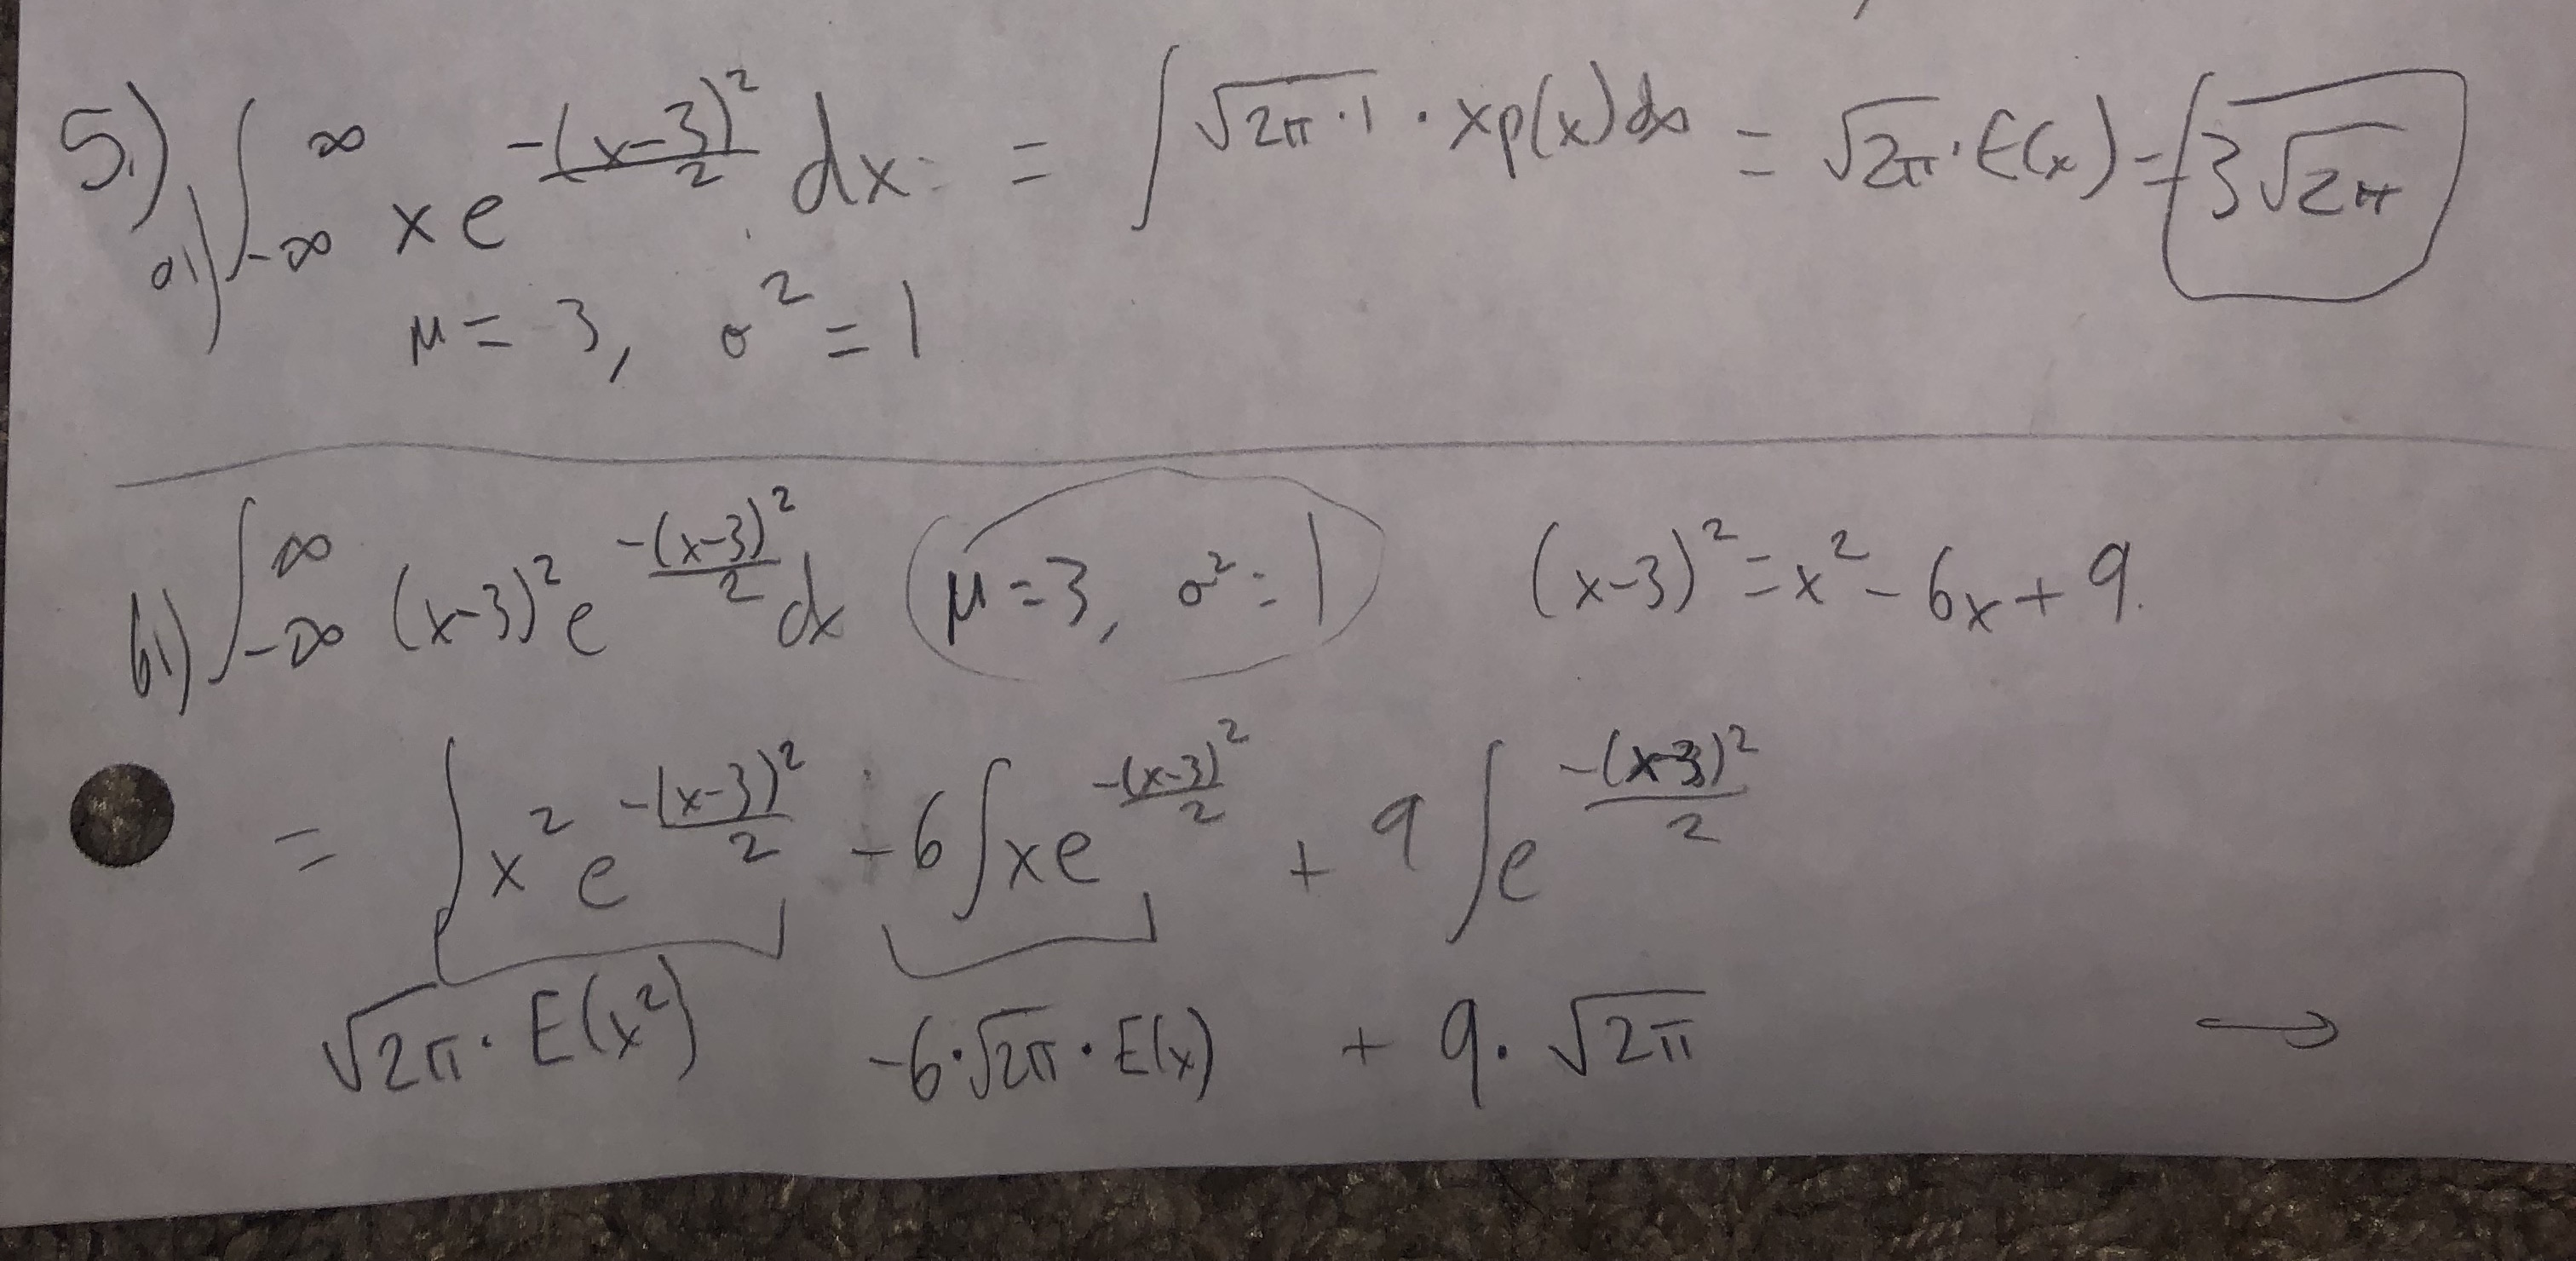 5.) a.) ∫_{-∞}^{∞} x e^{-(x-3)²/2} dx = ∫ √(2π·1) · xp(x)dx = √(2π) · E(x) = 3√(2π)
μ = 3, σ² = 1
b.) ∫_{-∞}^{∞} (x-3)² e^{-(x-3)²/2} dx μ=3, σ²=1 (x-3)² = x² - 6x + 9
= ∫ x² e^{-(x-3)²/2} - 6 ∫ x e^{-(x-3)²/2} + 9 ∫ e^{-(x-3)²/2}
√(2π) · E(x²) -6·√(2π) · E(x) + 9 · √(2π) →